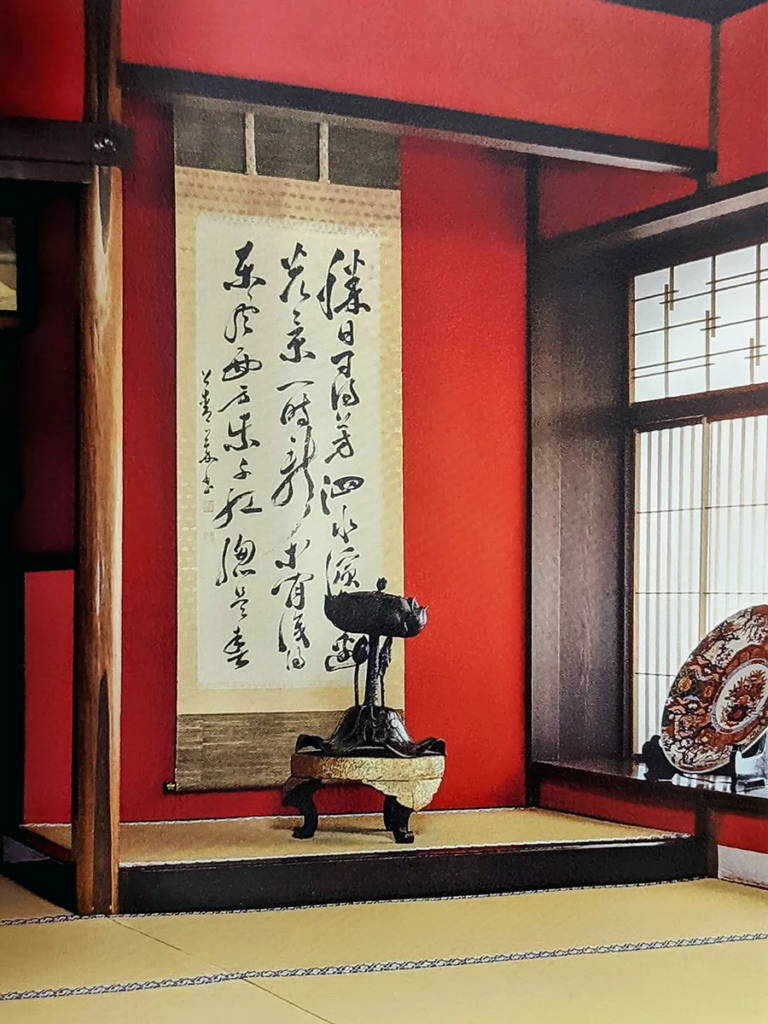 勝日尋芳泗水濱邊
光景一時新等閑識得
東風面万紫千紅總是春